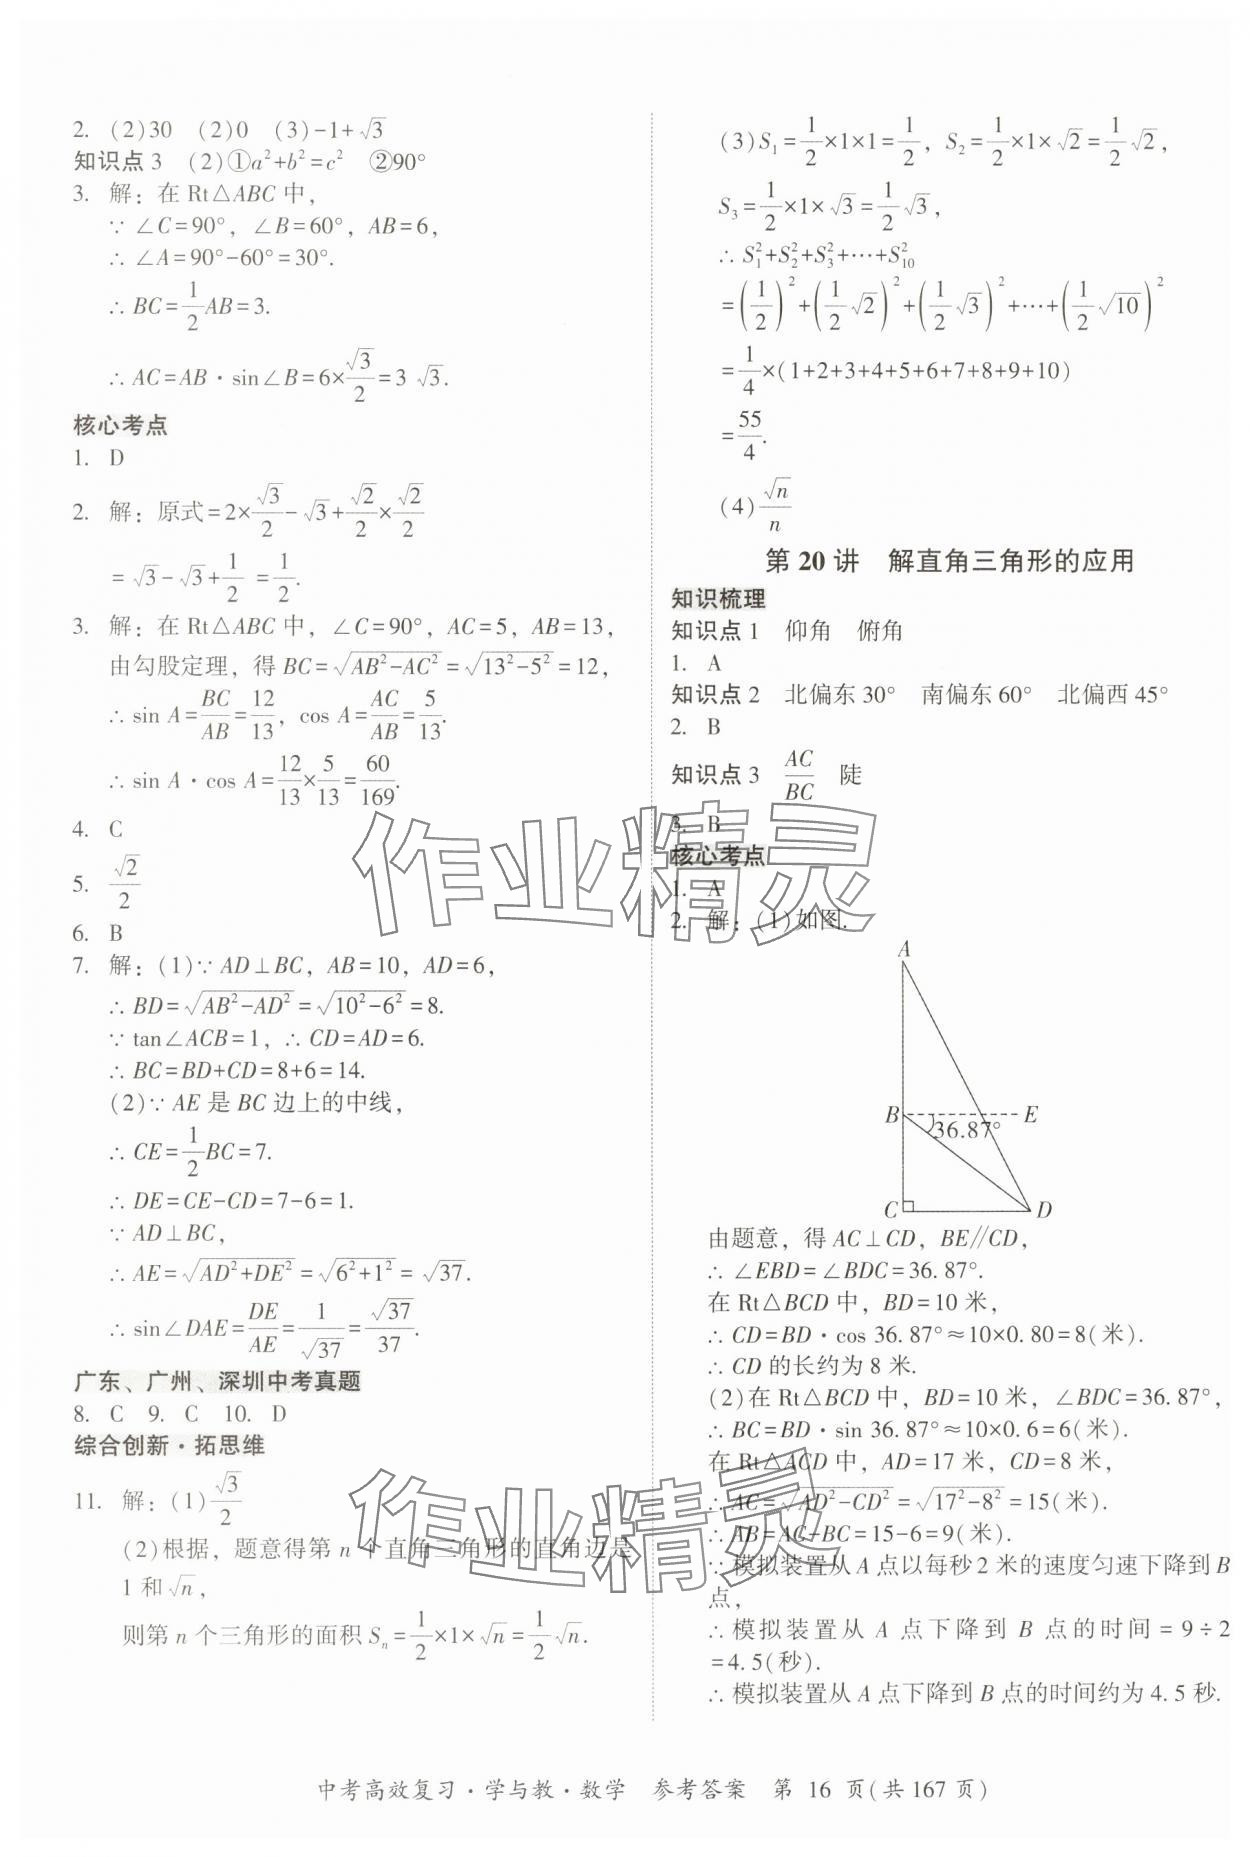 2. (2)30 (2)0 (3)-1+√3
知识点 3 (2)①a²+b²=c² ②90°
3. 解：在 Rt△ABC 中，
∵ ∠C=90°，∠B=60°，AB=6，
∴ ∠A=90°-60°=30°.
∴ BC=1/2AB=3.
∴ AC=AB·sin∠B=6×√3/2=3 √3.
核心考点
1. D
2. 解：原式=2×√3/2-√3+√2/2×√2/2
=√3-√3+1/2=1/2.
3. 解：在 Rt△ABC 中，∠C=90°，AC=5，AB=13，
由勾股定理，得 BC=√(AB²-AC²)=√(13²-5²)=12，
∴ sin A=BC/AB=12/13，cos A=AC/AB=5/13.
∴ sin A·cos A=12/13×5/13=60/169.
4. C
5. √2/2
6. B
7. 解：(1)∵ AD⊥BC，AB=10，AD=6，
∴ BD=√(AB²-AD²)=√(10²-6²)=8.
∵ tan∠ACB=1，∴ CD=AD=6.
∴ BC=BD+CD=8+6=14.
(2)∵ AE 是 BC 边上的中线，
∴ CE=1/2BC=7.
∴ DE=CE-CD=7-6=1.
∵ AD⊥BC，
∴ AE=√(AD²+DE²)=√(6²+1²)=√37.
∴ sin∠DAE=DE/AE=1/√37=√37/37.
广东、广州、深圳中考真题
8. C 9. C 10. D
综合创新·拓思维
11. 解：(1)√3/2
(2)根据，题意得第 n 个直角三角形的直角边是
1 和√n，
则第 n 个三角形的面积 Sₙ=1/2×1×√n=1/2√n.
(3)S₁=1/2×1×1=1/2，S₂=1/2×1×√2=1/2√2，
S₃=1/2×1×√3=1/2√3，
∴ S₁²+S₂²+S₃²+…+S₁₀²
=(1/2)²+(1/2√2)²+(1/2√3)²+…+(1/2√10)²
=1/4×(1+2+3+4+5+6+7+8+9+10)
=55/4.
(4)√n/n
第 20 讲 解直角三角形的应用
知识梳理
知识点 1 仰角 俯角
1. A
知识点 2 北偏东 30° 南偏东 60° 北偏西 45°
2. B
知识点 3 AC/BC 陡
3. B
核心考点
1. A
2. 解：(1)如图.
A
B
E
36.87°
C
D
由题意，得 AC⊥CD，BE∥CD，
∴ ∠EBD=∠BDC=36.87°.
在 Rt△BCD 中，BD=10 米，
∴ CD=BD·cos 36.87°≈10×0.80=8(米).
∴ CD 的长约为 8 米.
(2)在 Rt△BCD 中，BD=10 米，∠BDC=36.87°，
∴ BC=BD·sin 36.87°≈10×0.6=6(米).
在 Rt△ACD 中，AD=17 米，CD=8 米，
∴ AC=√(AD²-CD²)=√(17²-8²)=15(米).
∴ AB=AC-BC=15-6=9(米).
∵ 模拟装置从 A 点以每秒 2 米的速度匀速下降到 B
点，
∴ 模拟装置从 A 点下降到 B 点的时间=9÷2
=4.5(秒).
∴ 模拟装置从 A 点下降到 B 点的时间约为 4.5 秒.
作业精灵
作业精灵
中考高效复习·学与教·数学 参考答案 第 16 页(共 167 页)